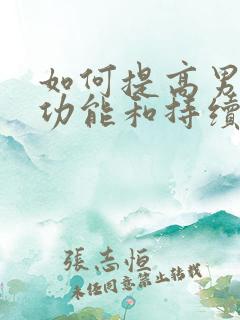 如何提高男
功能和持续
张志恒
未经同意禁止转载